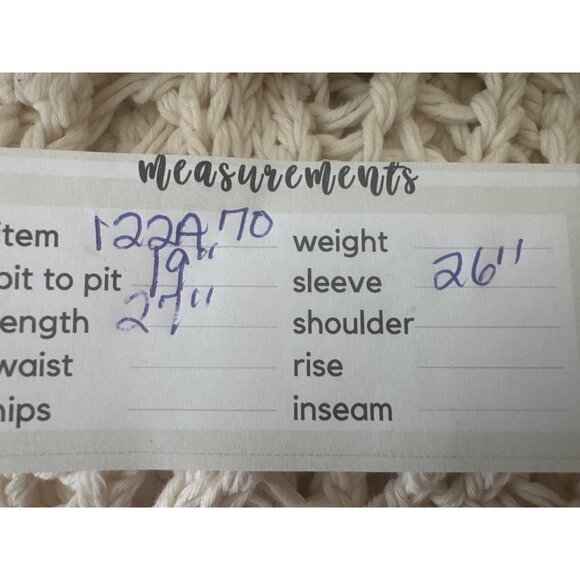 measurements
item 122A70 weight
pit to pit 19" sleeve 26"
length 27" shoulder
waist rise
hips inseam